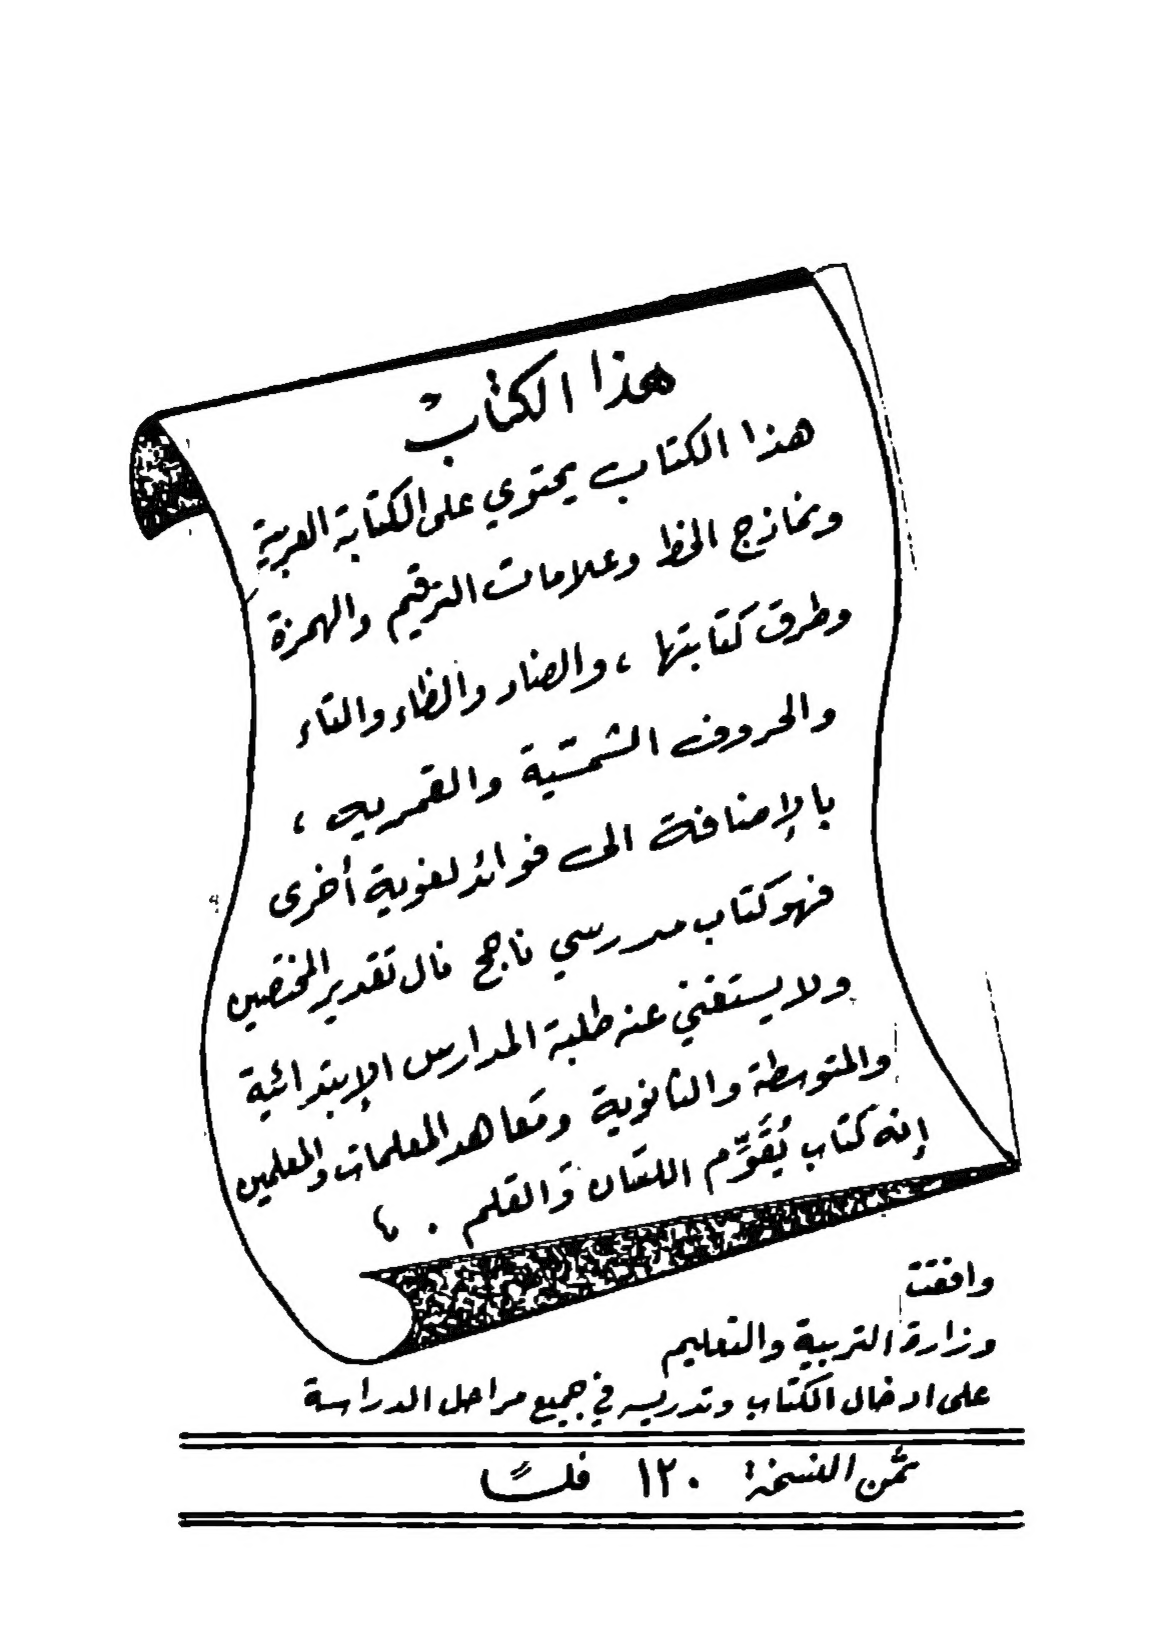 هذا الكتاب
هذا الكتاب يحتوي على الكتابة العربية
ونماذج الخط وعلامات الترقيم والهمزة
وطرق كتابتها ، والضاد والظاء والتاء
والحروف الشمسّية والقمريه ،
بالإضافة الى فوائد لغوية أخرى
فهو كتاب مدرسي ناجح نال تقدير المختصين
ولا يستغني عنه طلبة المدارس الإبتدائية
والمتوسطة والثانوية ومعاهد المعلمات والمعلمين
إنه كتاب يُقَوِّم اللسان والقلم .
وافقت
وزارة التربية والتعليم
على ادخال الكتاب وتدريسه في جميع مراحل الدراسة
ثمن النسخة : ١٢٠ فلساً